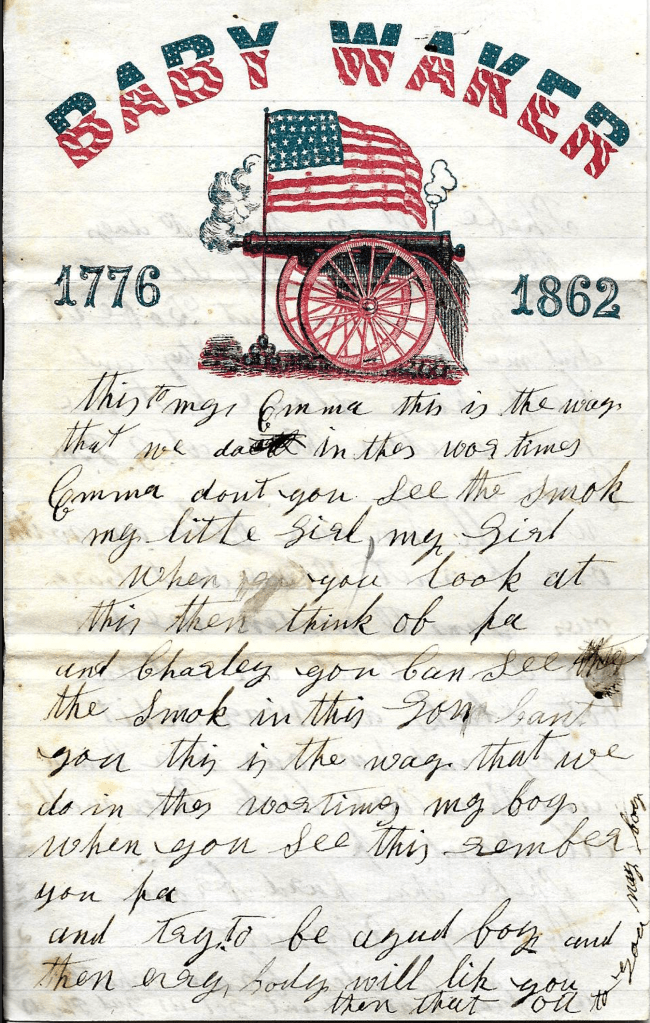 BABY WAKER
1776 1862
this to my Emma this is the way
that we do in thes wor times
Emma dont you See the Smok
my little Girl, my Girl
when you look at
this then think ob pa
and Charley you Can See
the Smok in this Gon Cant
you this is the way that we
do in thes wortimes my boy
when you See this rember
you pa
and try to be agud boy and
then evry body will lik you
then that all to
you my boy